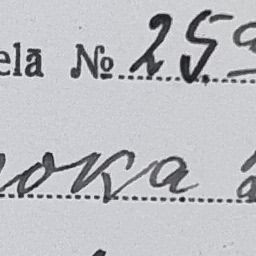 elā № 25
oka